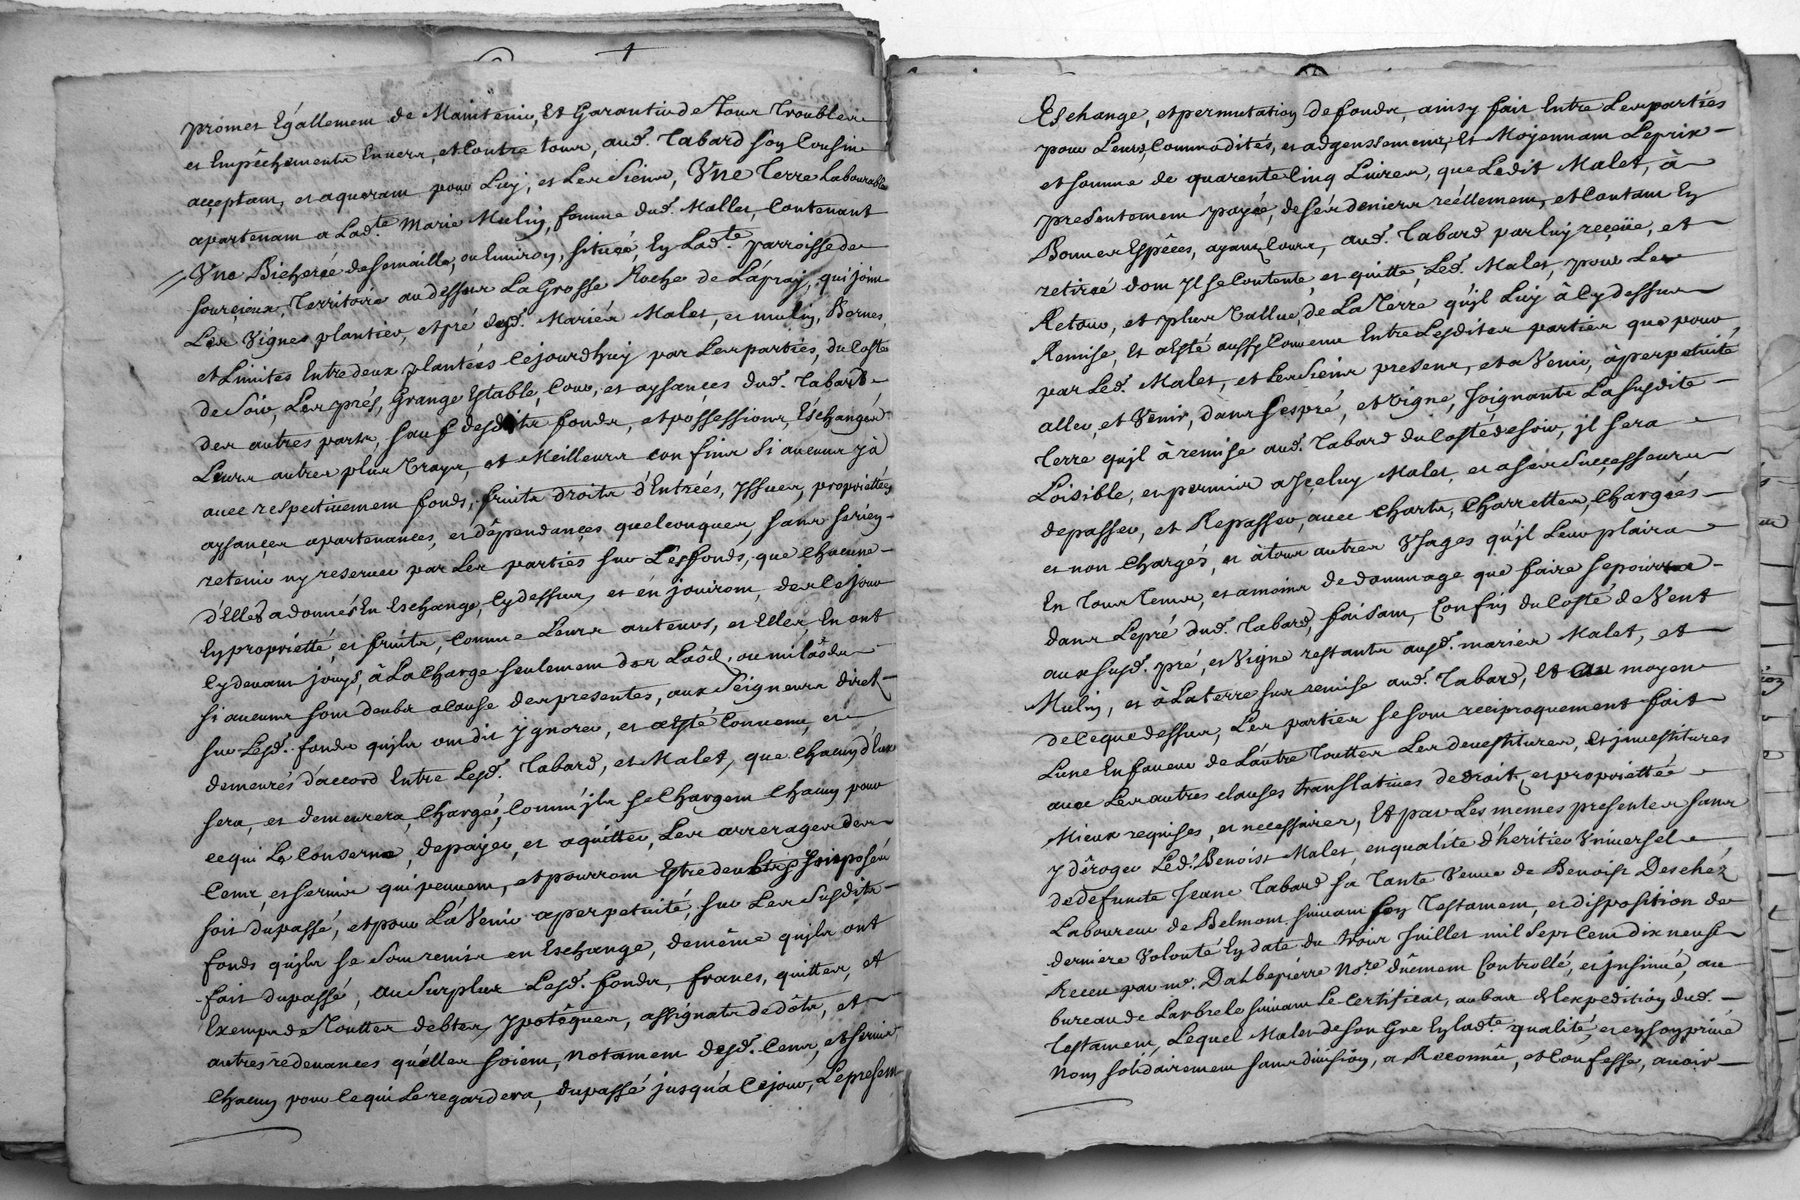 promet Egallement de Maintenir, Et Garantir de Tous Troubles
et Empêchements Envers, et Contre tous, aud.t Tabard son Cousin
acceptant, et aquerant pour Luy, et Les Siens, Vne Terre Labourable
apartenant a Lad.te Marie Mulin, femme dud.t Mallet, Contenant
Vne Bicherée de Semailles, ou Environ, Située, En Lad.te parroisse de
Sourcieux, Territoire au dessus La Grosse Roche de Lápray, qui joint
Les Vignes plantier, et pré desd.t Mariés Malet, et mulin, Bornes,
et Limites Entre deux plantées Cejourdhuy par Les parties, du Costé
de Soir, Les prés, Grange Estable, Cour, et aysances dud.t Tabard
des autres parts, Sauf desdits fonds, et possessions, Eschangés
Leurs autres plus Vrays, et Meilleurs confins Si aucuns y à
avec respectivement fonds, fruits droits d'Entrées, yssues, propriettés
aysances apartenances, et dépendances quelconques, Sans Se rien
retenir ny reserver par Les parties Sur Lesfonds, que chacune
d'Elles a donnés En Eschange, Cy dessus, et én jouiront, des Ce jour
En propriétté et fruits, comme Leurs auteurs, et Elles En ont
Cy devant jouys, à La Charge Seulement des Laôd, ou milaôds
Si aucuns Sont deubs a cause des presentes, aux Seigneurs direct
Sur Lesd.t fonds qu'ils ont dit ygnorer, et aesté Convenu, et
demeurés d'accord Entre Lesd.t Tabard, et Malet, que Chacun d'Eux
Sera, et demeurera, Chargés, Comme jls Se Chargent Chacun pour
cequi Le Conserne, de payer, et aquitter, Les arrerages des
Cens, et Servis qui peuvent, et pourront Estre deubs Et jmposés
Soit du passé, et pour L'à Venir a perpetuité, Sur Les Susdits
fonds qu'ils Se Sont remis en Eschange, de même qu'ils ont
fait du passé, au Surplus Lesd.t fonds, francs, quittes, et
Exempts de Touttes debtes, ypotêques, assignats de dôts, et
autres redevances qu'elles Soient, notament desd.t Cens, et Servis,
Chacun pour Ce qui Le regardera, du passé jusqu'a Ce jour, L'epresent
Eschange, et permutation de fonds, ainsy fait Entre Les parties
pour Leurs Commodités, et adgenssement, Et Moyennant Le prix
et Somme de quarente Cinq Livres, que Ledit Malet, à
presentement payée, de Ses deniers réellement, et Contant En
Bonnes Espêces, ayant Cours, aud.t Tabard par luy reçeüe, et
retirée dont Jl Se Contente, et quitte, Led.t Malet, pour Les
Retour, et plus Vallue, de La Terre qu'jl Luy à Cy dessus
Remise, Et aesté aussy Convenu Entre Lesdites parties que pour
par Led.t Malet, et Les Siens present, et a Venir, à perpetuité
aller, et Venir, dans Ses pré, et Vigne, Joignants La Susdite
Terre qu'jl à remise aud.t Tabard du Costé de Soir, jl Sera
Loisible, et permis a Jceluy Malet, et a Ses Successeurs
de passer, et Repasser, avec Chart, Charrettes, Chargées
et non Chargés, et à tous autres Vsages qu'jl Leur plaira
En Tous Tems, et a moins de dommage que faire Se pourra
dans Le pré dud.t Tabard, faisant, Confin du Costé de Vent
aux Susd.t pré, et Vigne restants ausd.t mariés Malet, et
Mulin, et à La terre Sus remise aud.t Tabard, Et au moyen
de Ce que dessus, Les parties Se Sont reciproquement fait
L'une En faveur de L'autre Touttes Les devestitures, Et jnvestitures
avec Les autres clauses translatives de droit, et propriettée
Mieux requises, et necessaires, Et par Les memes presentes Sans
y déroger Led.t Benoist Malet, en qualité d'heritier Vniversel
de defuncte Jeane Tabard Sa Tante Veuve de Benoist Deschéz
Laboureur de Belmont Suivant Son Testament, et disposition de
derniere Volonté En date du trois Juillet mil Sept Cent dix neuf
Receu par m.e Dalbepierre No.re dûement Controllé, et jnsinué, au
bureau de Larbrele Suivant Le Certificat, au bas de L'expedition dud.t
Testament, Lequel Malet de Son Gre En lad.te qualité, et en Son privé
Nom Solidairement Sans division, a Reconnû, et Confesse, avoir